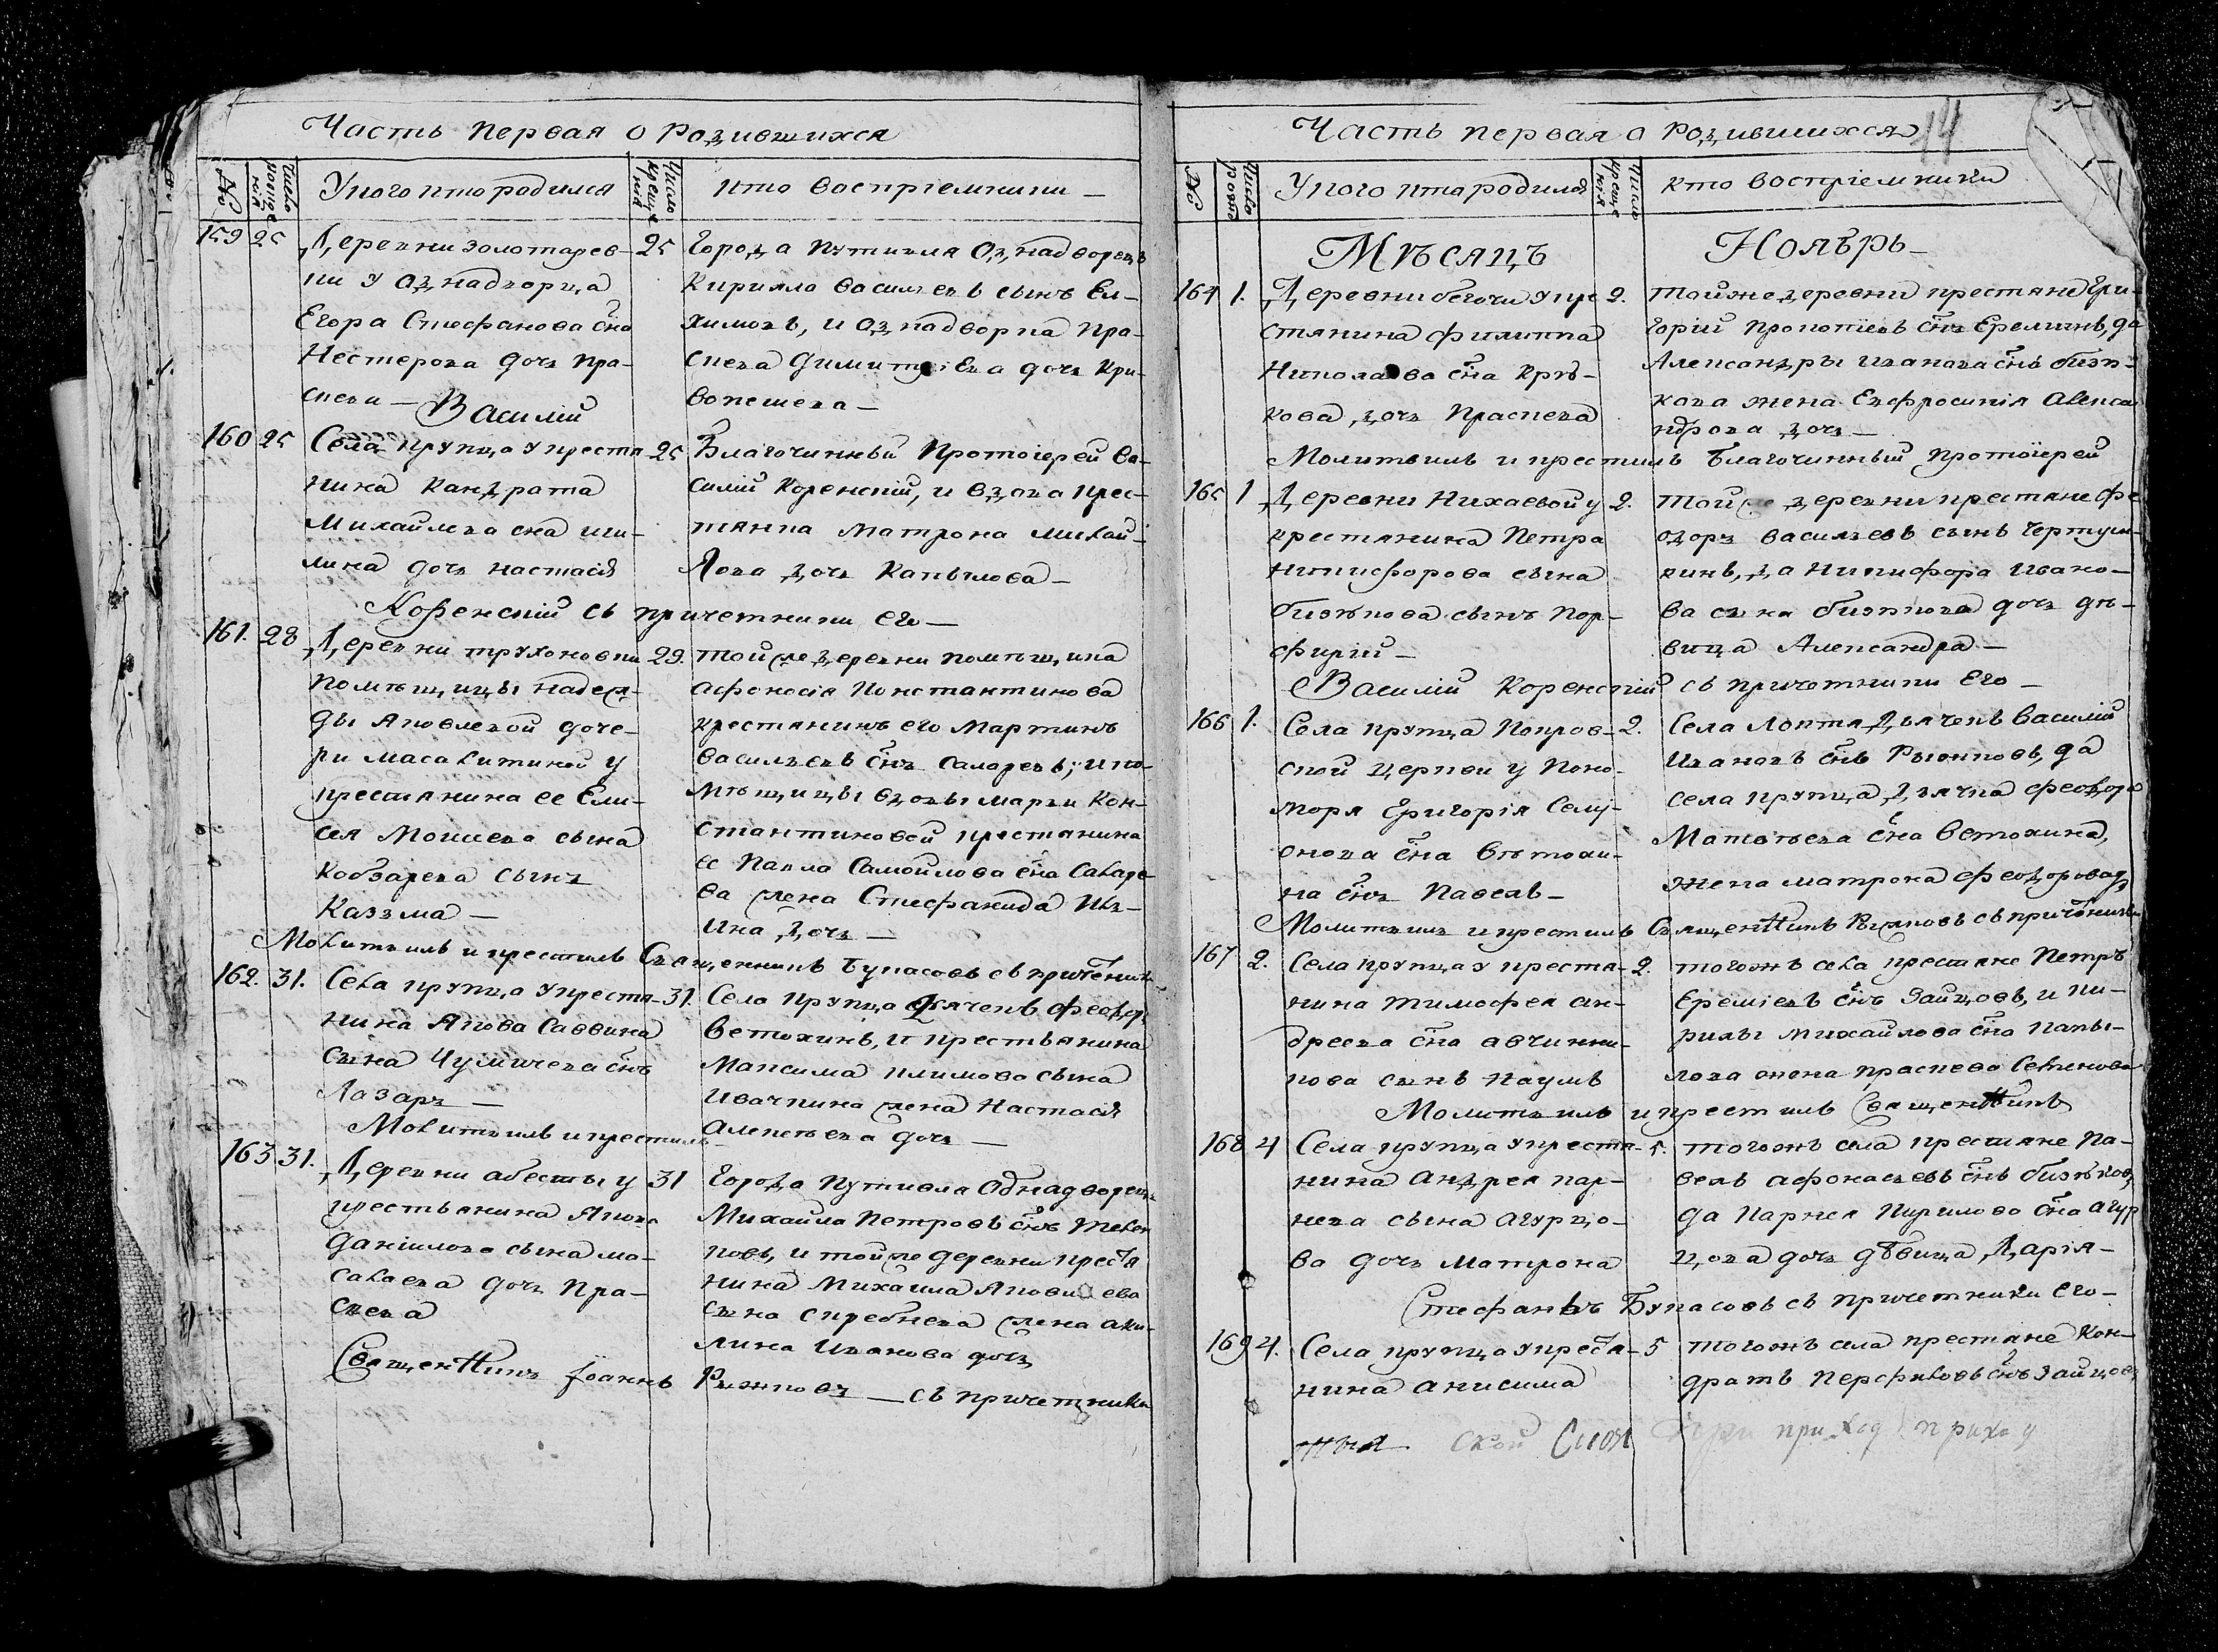 Часть первая о родившихся
№
Число рожде нія
У кого кто родился
Число креще нія
кто воспріемники —
159 25 Деревни золотарев-
ки у однадворца
Егора Стефанова сна
Нестерова дочь Пра-
сковя —
25 Города Путивля Однадворецъ
Кирилла Васильевъ сынъ Ев-
химовъ, и однадворка Пра-
сковя Димитріева дочь Кри-
вопешева —
Василій
160 25 Села Крупца у крестя-
нина Кандрата
Михайлова сна или-
лина дочь настасія
25 Благочинный Протоіерей Ва-
силій Коренскій, и вдова крес-
тянка Матрона Михай-
лова дочь Капылова —
Коренскій съ причетники его —
161. 28 Деревни трухоновки
помѣщицы надеж-
ды Яковлевой доче-
ри масалитиной у
крестянина ее Ели-
сея Моисеева сына
Кобзарева сынъ
Казма —
29. той же деревни помѣщика
афонасія Константинова
крестянинъ его Мартинъ
Васильевъ снъ Саларевъ, и по-
мѣщицы вдовы марьи Кон-
стантиновой крестянина
ее Павла Самойлова сна Саларе
ва жена Стефанида Иль-
ина дочь —
Молитвилъ и крестилъ Священникъ Букасовъ съ причетники
162. 31. Села крупца у крестя-
нина Якова Саввина
сына Чумичева снъ
Лазарь —
31. Села крупца Дячекъ Феодоръ
Ветохинъ, и крестьянина
Максима климова сына
Ивачкина жена Настасія
Алексѣева дочь —
Молитвилъ и крестилъ
163 31. Деревни абесты у
крестьянина Якова
Даніилова сына ма-
салаева дочь Пра-
сковя
31 Города Путивля Однадворецъ
Михаила Петровъ снъ
ковъ, и той же деревни крестя
нина Михаила Яковлева
сына скребнева жена аки-
лина Иванова дочь
Священникъ Іоаннъ Рыжковъ — съ причетники
Часть первая о родившихся
14
№
Число рожд
У кого кто родился
Число креще нія
кто воспріемники
Мѣсяцъ Ноябрь —
164 1. Деревни бегочи у кре
стянина филиппа
Николаева сна Крю-
кова дочь Прасковя
2. той же деревни крестяне Гри-
горій Прокопіевъ снъ Ереминъ, да
Александры Иванова снъ бизю-
кова жена Евфросинія Алекса
ндрова дочь —
Молитвилъ и крестилъ Благочинный протоіерей
165 1 Деревни Нихаевой у
крестянина Петра
Никифорова сына
бизюкова сынъ Пор-
фирій —
2. той же деревни крестяне Фе
одоръ Васильевъ сынъ Чертуш-
кинъ, да Никифора Ивано-
ва сына бизюкова дочь дѣ-
вица Александра —
Василій Коренскій съ причетники его —
166 1. Села крупца Покров-
ской церкви у поно-
моря Григорія Семи-
онова сна Ветохи-
на снъ Павелъ —
2. Села Локтя Дьячекъ Василій
Ивановъ снъ Рыжковъ, да
села крупца Дьячка Феодора
Матвѣева сна Ветохина,
жена матрона Феодорова д
Молитвилъ и крестилъ Священникъ Рыжковъ съ причетники
167 2. Села крупца у крестя-
нина тимофея ан-
дреева сна авчинни-
кова сынъ Наумъ
2. тогожъ села крестяне Петръ
Еремѣевъ снъ Зайцовъ, и Ки-
рилы Михайлова сна Капы-
лова жена прасковя Семенова
Молитвилъ и крестилъ Священникъ
168 4 Села крупца у крестя-
нина Андрея кар-
нева сына Агурцо-
ва дочь Матрона
5. тогожъ села крестяне Па-
велъ афонасьевъ снъ бизюков,
да Карнея Кирилова сна Агур
цова дочь дѣвица Дарія —
Стефанъ Букасовъ съ причетники его —
169 4. Села крупца у крестя-
нина анисима
5 тогожъ села крестяне Кон-
дратъ Перфиловъ снъ Зайцов,
ской при приход приход